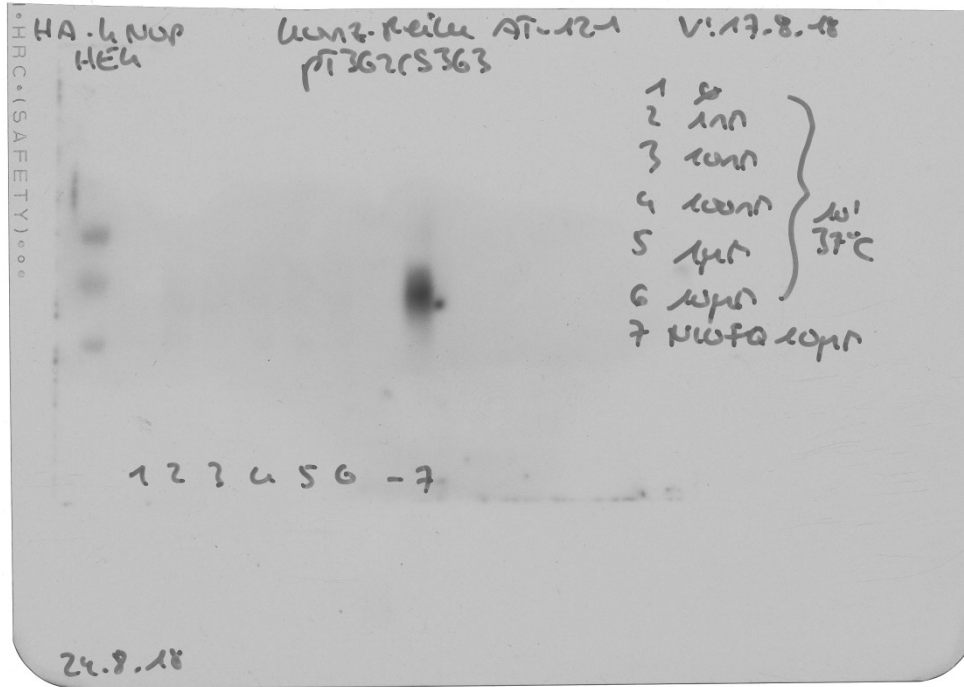 HRC (SAFETY)
HA-hNOP Konz.-Reihe AT-121 V: 17.8.18
HEK pT362/S363
1 Ø
2 1nM
3 10nM
4 100nM
5 1µM
6 10µM
10' 37°C
7 N/OFQ 10µM
1 2 3 4 5 6 - 7
24.8.18